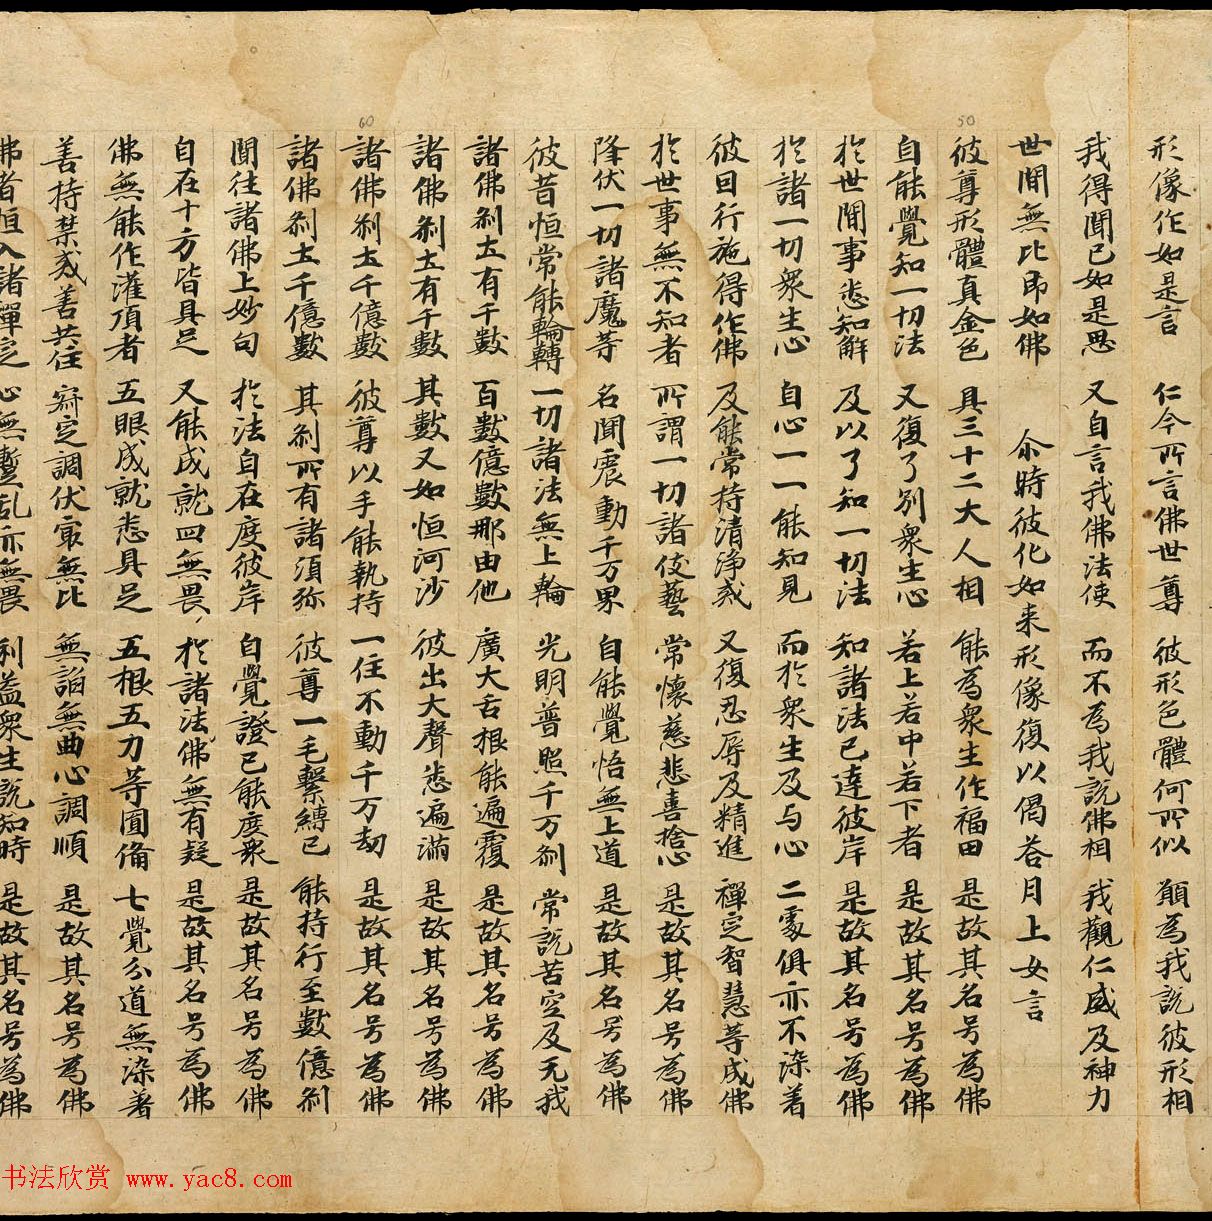 形像作如是言 仁今所言佛世尊 彼形色體何所似 願為我說彼形相
我得聞已如是思 又自言我佛法使 而不為我說佛相 我觀仁威及神力
世間無比即如佛 尒時彼化如来形像復以偈荅月上女言
彼尊形體真金色 具三十二大人相 能為衆生作福田 是故其名号為佛
自能覺知一切法 又復了別衆生心 若上若中若下者 是故其名号為佛
於世間事悉知解 及以了知一切法 知諸法已達彼岸 是故其名号為佛
於諸一切衆生心 自心一一能知見 而於衆生及与心 二處俱亦不染着
彼日行施得作佛 及能常持清淨戒 又復忍辱及精進 禪定智慧等成佛
於世事無不知者 所謂一切諸伎藝 常懷慈悲喜捨心 是故其名号為佛
降伏一切諸魔等 名聞震動千万界 自能覺悟無上道 是故其名号為佛
彼昔恒常能輪轉 一切諸法無上輪 光明普照千万剎 常說苦空及无我
諸佛剎土有千數 百數億數那由他 廣大舌根能遍覆 是故其名号為佛
諸佛剎土有千數 其數又如恒河沙 彼出大聲悉遍滿 是故其名号為佛
諸佛剎土千億數 彼尊以手能執持 一住不動千万劫 是故其名号為佛
諸佛剎土千億數 其剎所有諸須弥 彼尊一毛繫縛已 能持行至數億剎
聞往諸佛上妙句 於法自在度彼岸 自覺證已能度衆 是故其名号為佛
自在十方皆具足 又能成就四無畏 於諸法佛無有疑 是故其名号為佛
佛無能作灌頂者 五眼成就悉具足 五根五力等圓備 七覺分道無染著
善持禁戒善共住 寂定調伏冣無比 無諂無曲心調順 是故其名号為佛
佛者恒入諸禪定 心無蹔乱亦無畏 利益衆生說知時 是故其名号為佛
50
60
书法欣赏 www.yac8.com